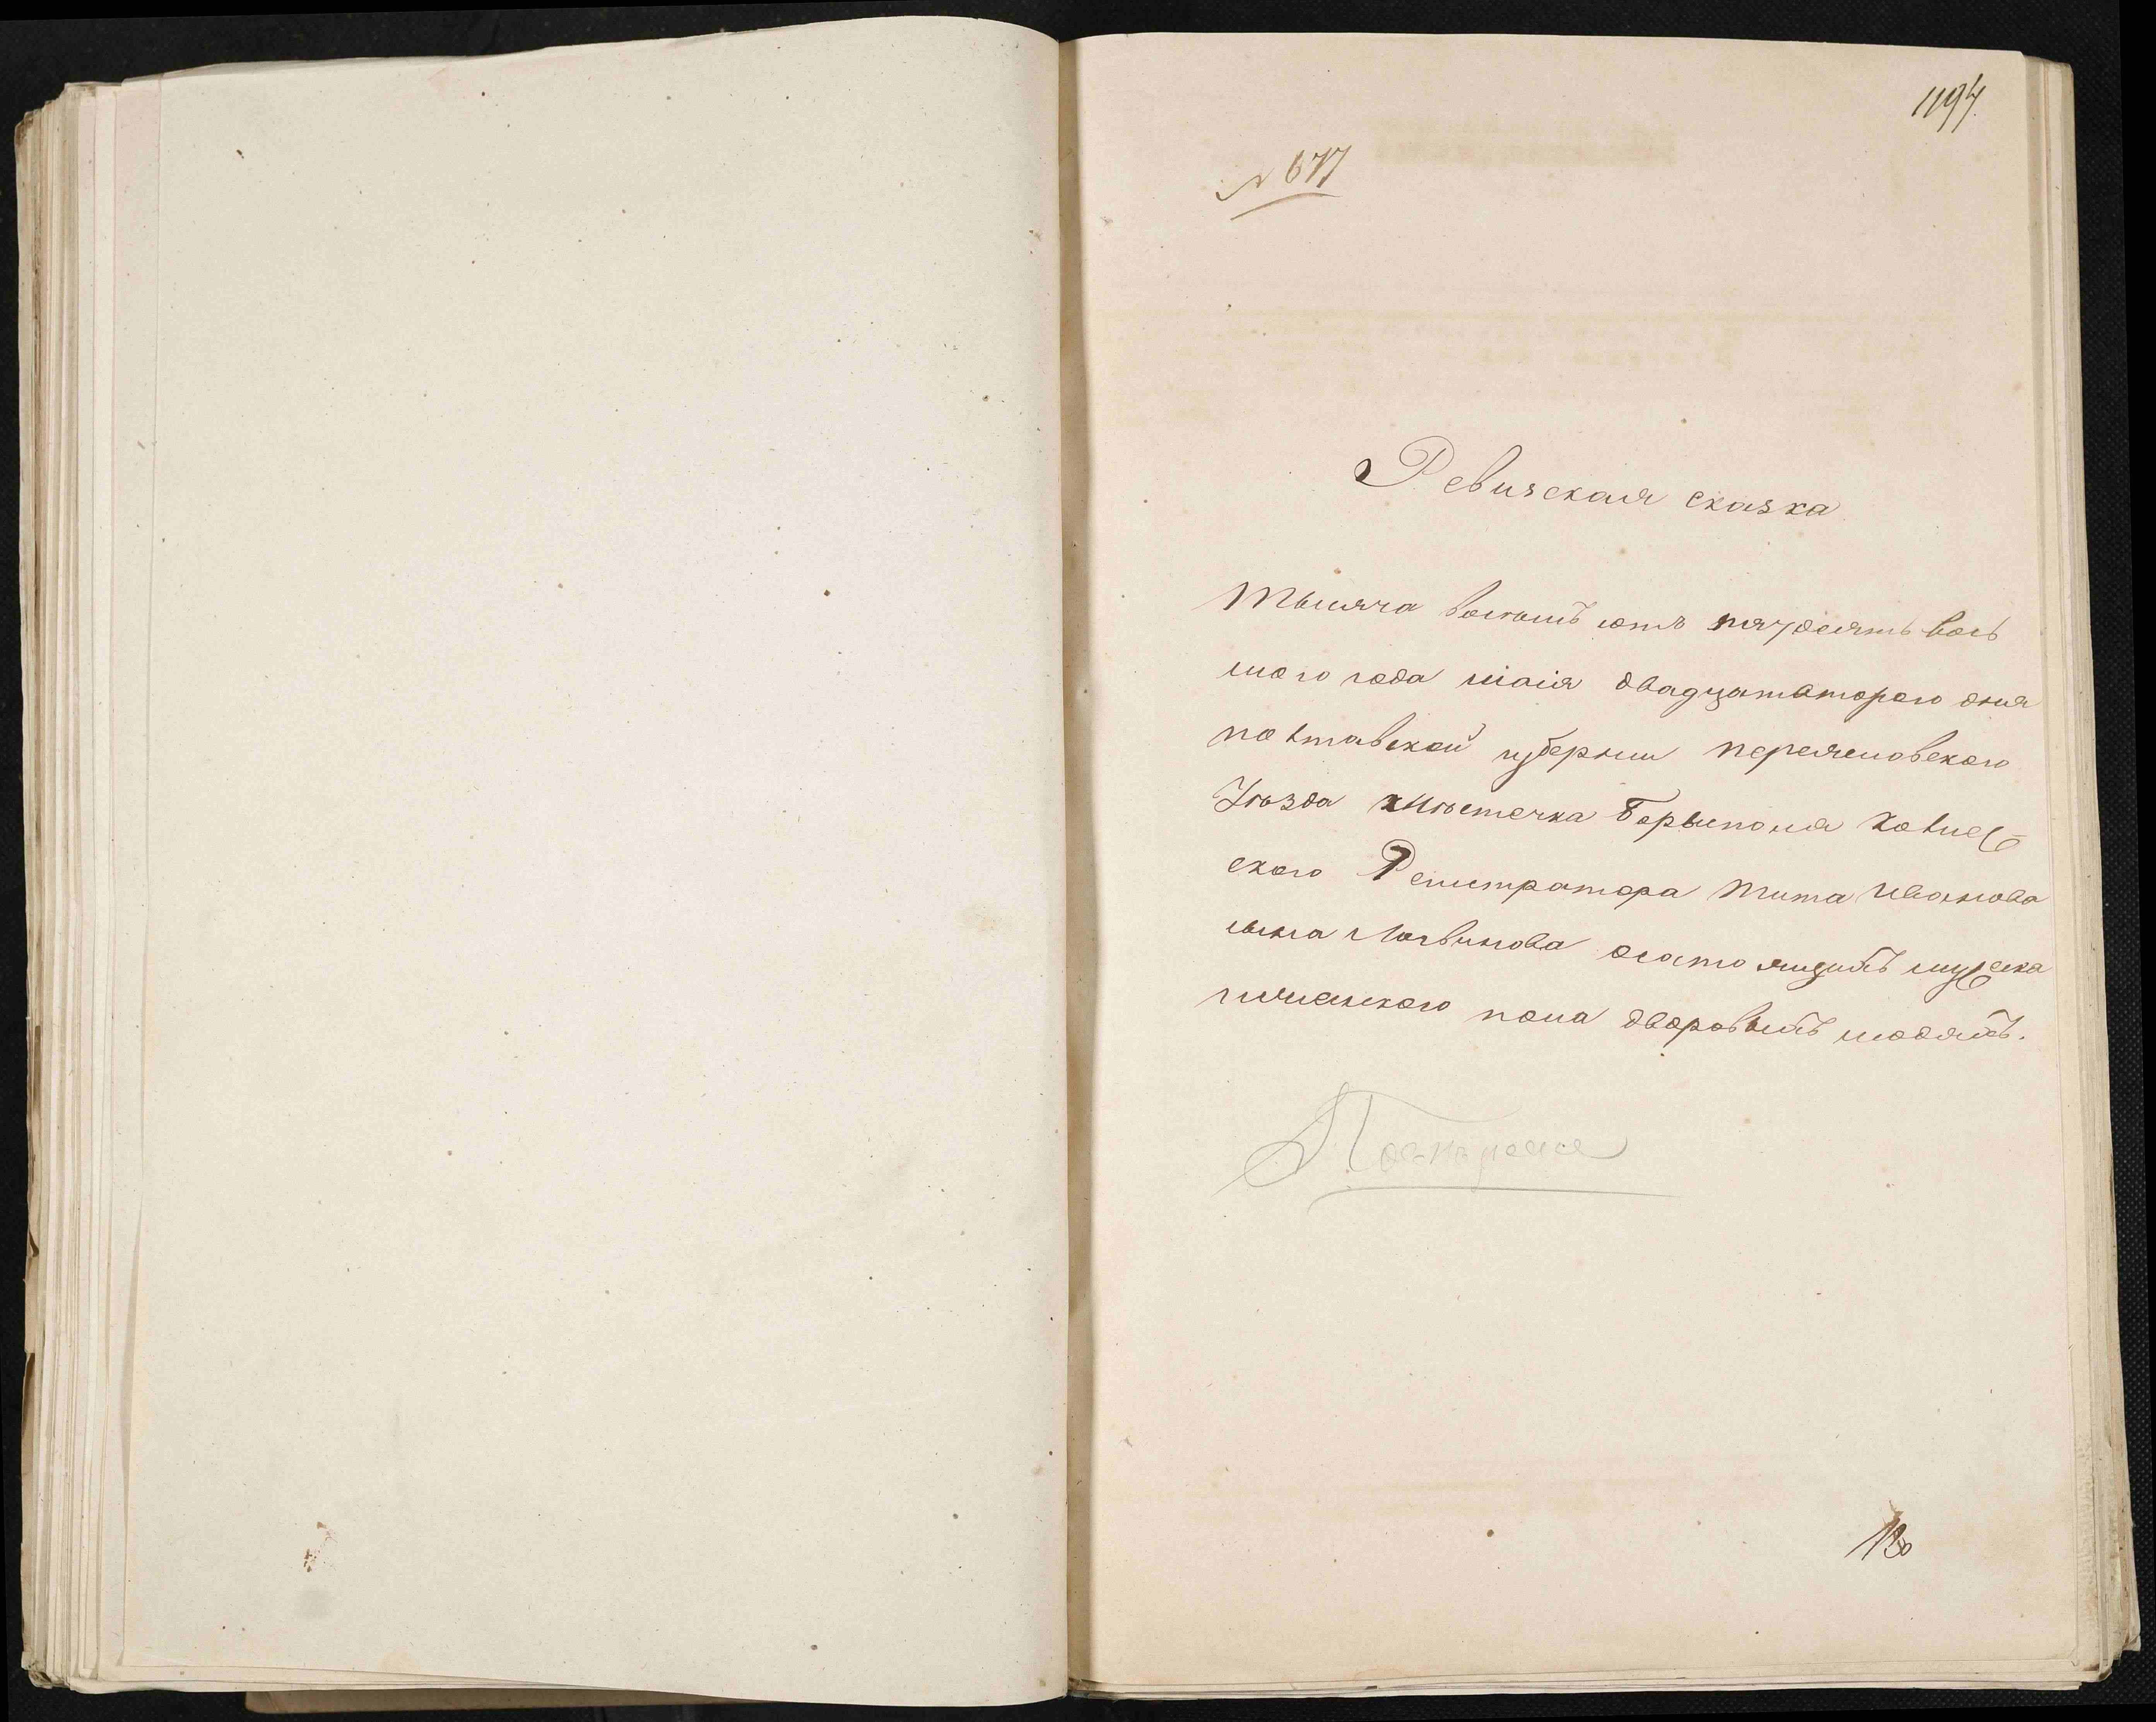 1194.
№ 677
Ревизская сказка
Тысяча восемь сотъ пятдесятъ вось
мого года маія двадцатвторого дня
полтавской губерніи переясловского
Уѣзда Мѣстечка Борысполя Колисъ-
ского Регистратора Тита Иванова
сына Логвинова осостоящихъ муżеска
иженского пола дворовыхъ людяхъ.